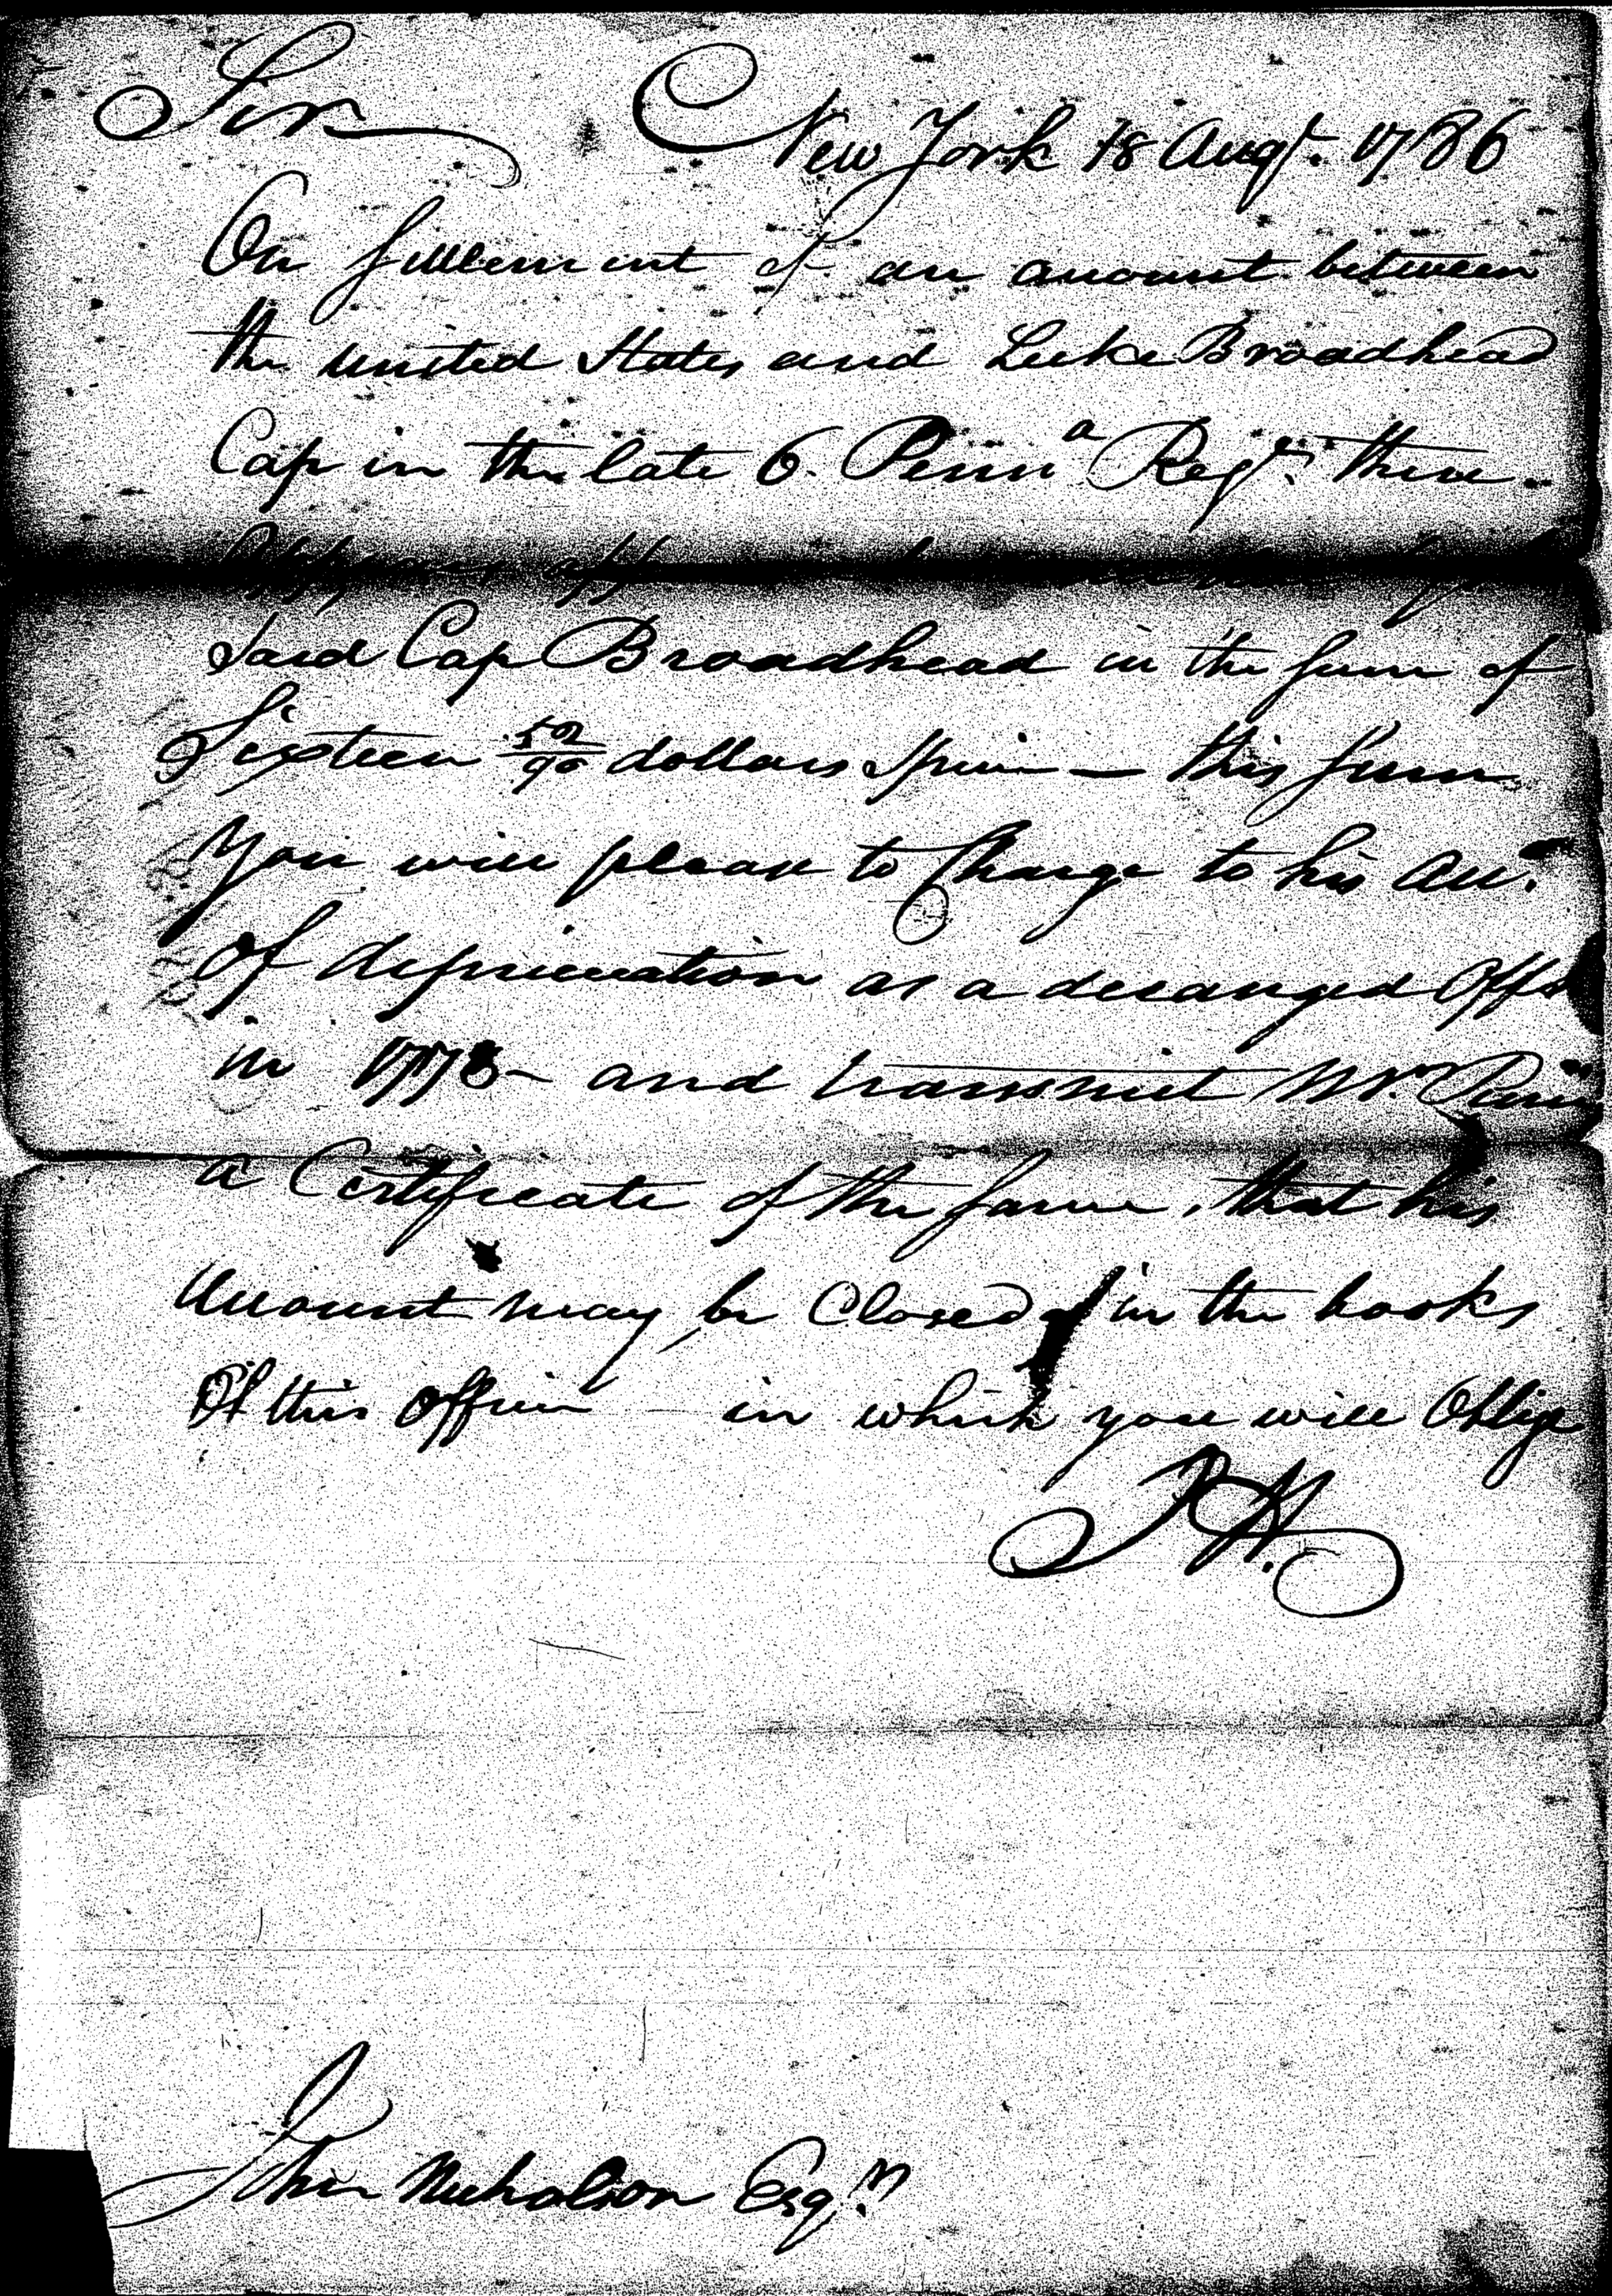 Sir
New York 18 Augt. 1786
On settlement of an account between
the united States and Luke Broadhead
Cap in the late 6. Penna Regt. there
Appears
said Cap Broadhead in the sum of
Sixteen 52/90 dollars Specie — this sum
You will please to Charge to his Acct.
Of depreciation as a deranged Offr
in 1778 — and transmit Mr.
a Certificate of the same, that his
Account may be Closed in the books
Of this office — in which you will Oblige
John Nicholson Esqr.